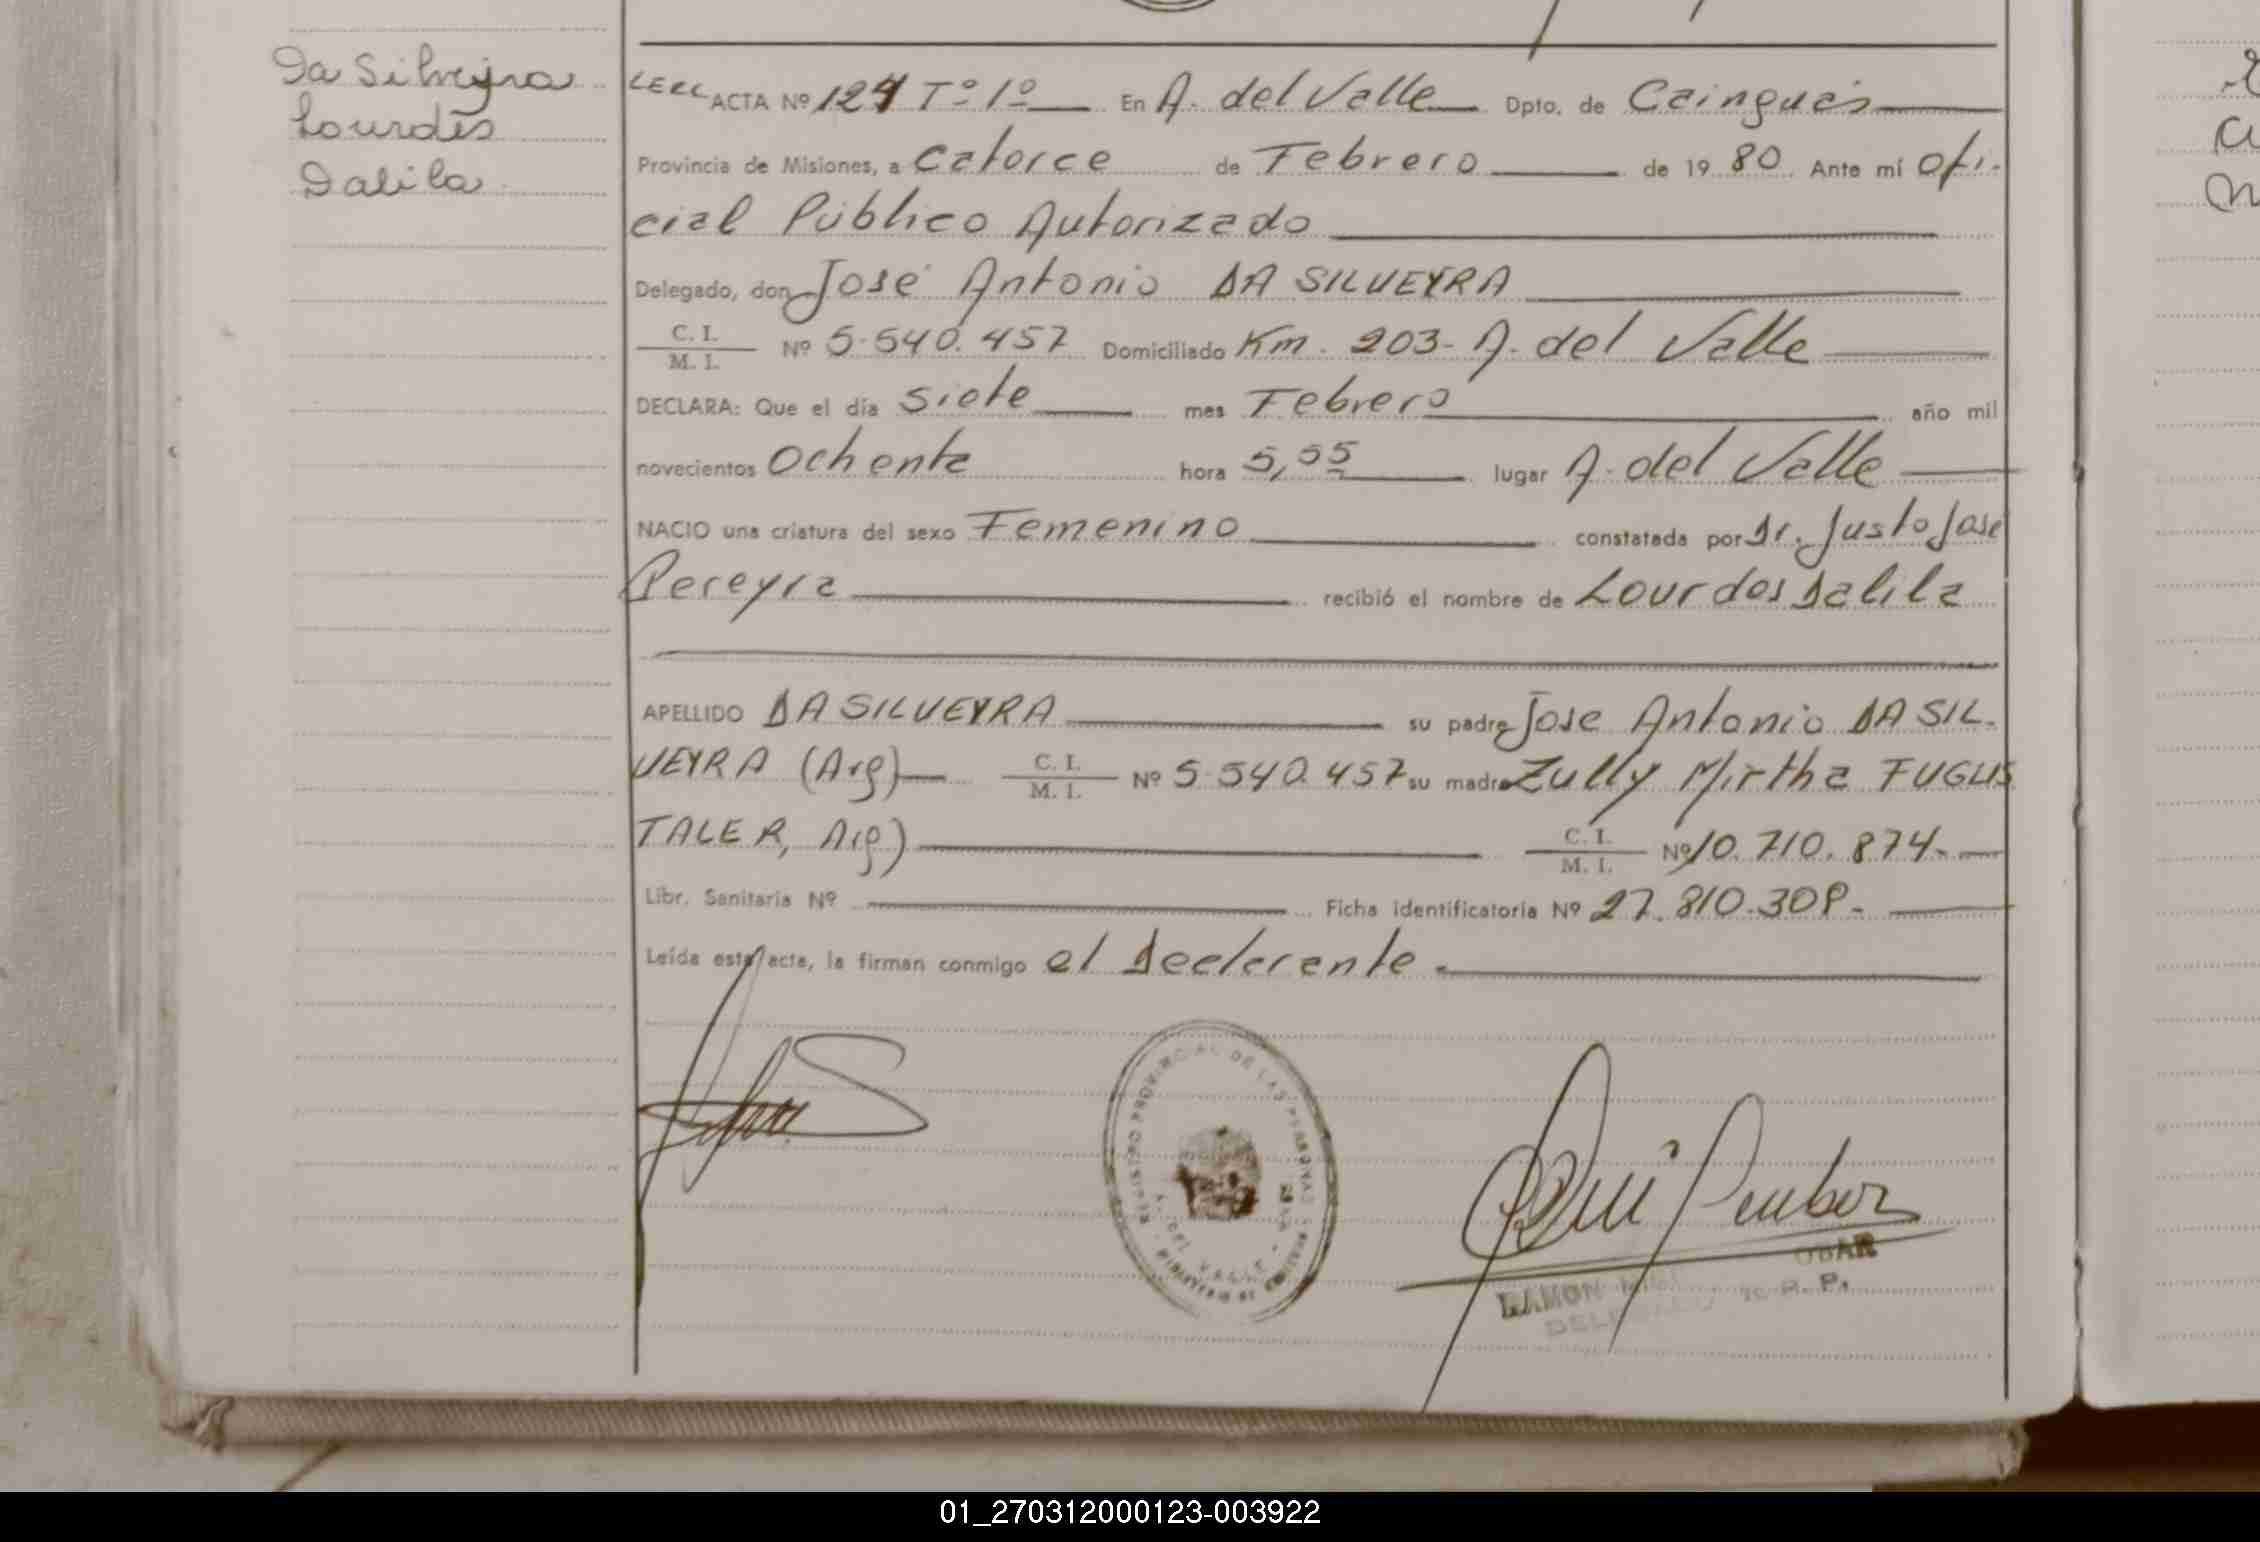 Da Silveyra
Lourdes
Dalila
ACTA Nº 124 Tº 1º En A. del Valle Dpto. de Cainguas
Provincia de Misiones, a Catorce de Febrero de 19 80. Ante mí Ofi-
cial Público Autorizado
Delegado, don José Antonio DA SILVEYRA
C. I.
M. I. Nº 5.540.457 Domiciliado Km. 203- A. del Valle
DECLARA: Que el día Siete mes Febrero año mil
novecientos Ochenta hora 5,55 lugar A. del Valle
NACIO una criatura del sexo Femenino constatada por Dr. Justo José
Pereyra recibió el nombre de Lourdes Dalila
APELLIDO DA SILVEYRA su padre José Antonio DA SIL-
VEYRA (Arg) C. I.
M. I. Nº 5.540.457 su madre Zully Mirtha FUGLIS
TALER, Arg) C. I.
M. I. Nº 10.710.874-
Libr. Sanitaria Nº Ficha identificatoria Nº 27.810.308-
Leída esta acta, la firman conmigo el Declarente.-
REGISTRO PROVINCIAL DE LAS PERSONAS
A. DEL VALLE
RAMON
01_270312000123-003922